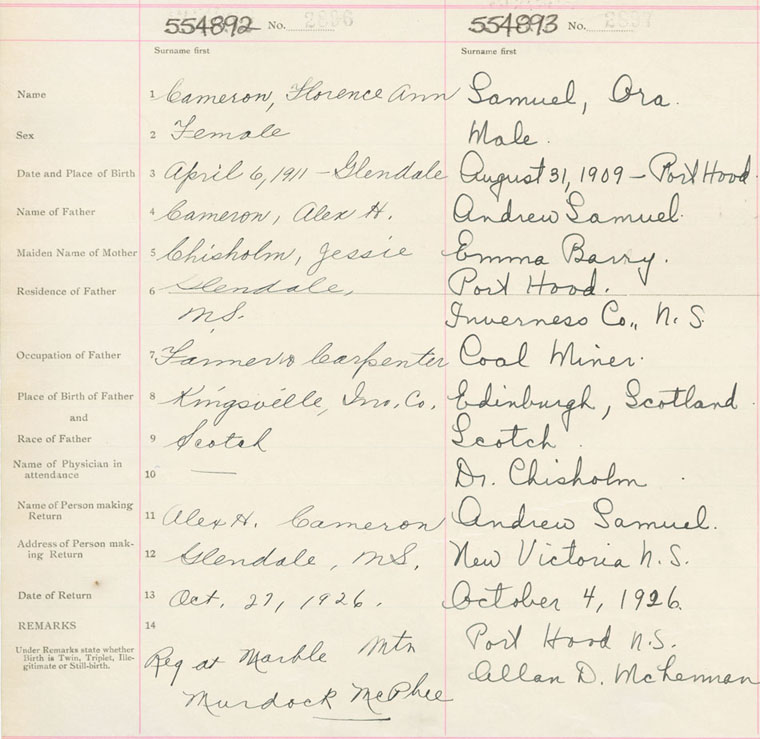 554892 No. 2886 554893 No. 2887
Surname first Surname first
Name 1 Cameron, Florence Ann Samuel, Ora.
Sex 2 Female Male.
Date and Place of Birth 3 April 6, 1911 - Glendale August 31, 1909 - Port Hood.
Name of Father 4 Cameron, Alex H. Andrew Samuel.
Maiden Name of Mother 5 Chisholm, Jessie Emma Barry.
Residence of Father 6 Glendale, Port Hood.
N.S. Inverness Co., N.S.
Occupation of Father 7 Farmer & Carpenter Coal Miner.
Place of Birth of Father 8 Kingsville, Inv. Co. Edinburgh, Scotland.
and
Race of Father 9 Scotch Scotch.
Name of Physician in
attendance 10 — Dr. Chisholm.
Name of Person making
Return 11 Alex H. Cameron Andrew Samuel.
Address of Person mak-
ing Return 12 Glendale, N.S. New Victoria N.S.
Date of Return 13 Oct. 27, 1926. October 4, 1926.
REMARKS 14 Port Hood N.S.
Under Remarks state whether
Birth is Twin, Triplet, Ille-
gitimate or Still-birth.
Reg at Marble Mtn Allan D. McLennan
Murdock McPhee